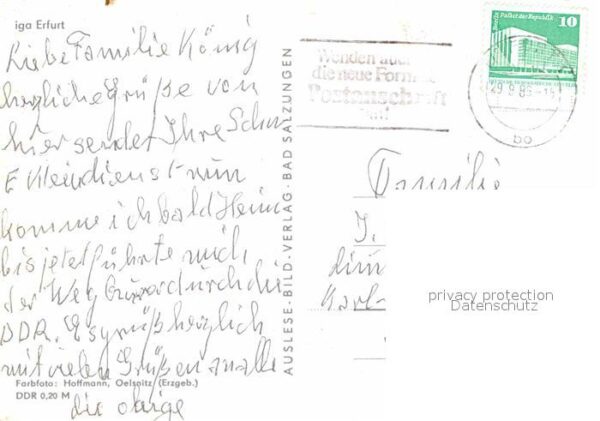 iga Erfurt
Liebe Familie König
herzliche Grüße von
hier sendet Ihre
nun
komme ich bald Heim
bis jetzt führte mich
der Weg durch die
DDR. Es grüßt herzlich
mit vielen Grüßen an alle
die obige
Farbfoto: Hoffmann, Oelsnitz (Erzgeb.)
DDR 0,20 M
AUSLESE-BILD-VERLAG · BAD SALZUNGEN
Wenden auch
die neue Form der
Postanschrift
an!
Palast der Republik
10
Familie
J.
Karl-
privacy protection
Datenschutz